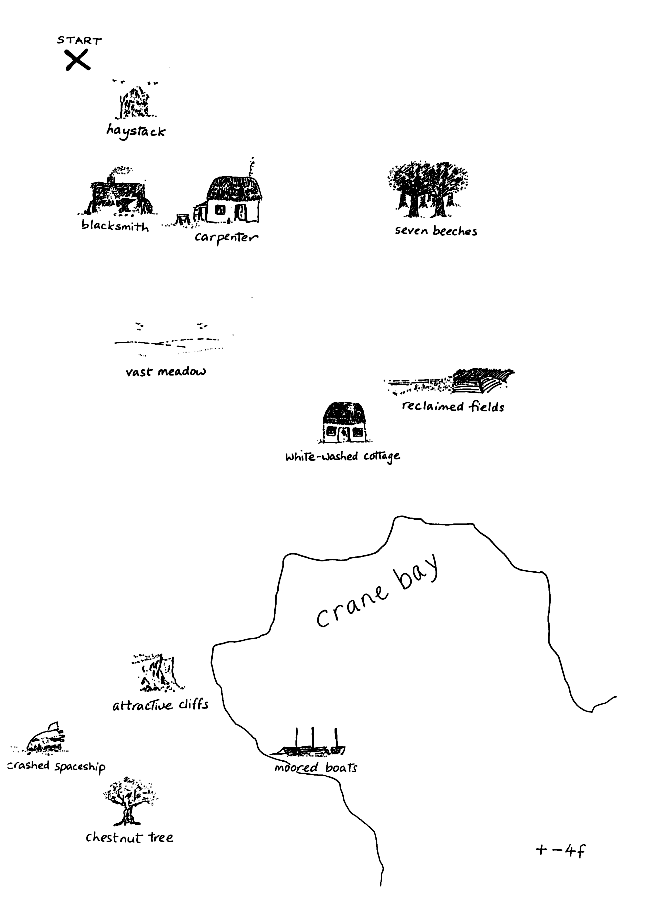 START
haystack
blacksmith
carpenter
seven beeches
vast meadow
reclaimed fields
white-washed cottage
crane bay
attractive cliffs
crashed spaceship
moored boats
chestnut tree
+-4f